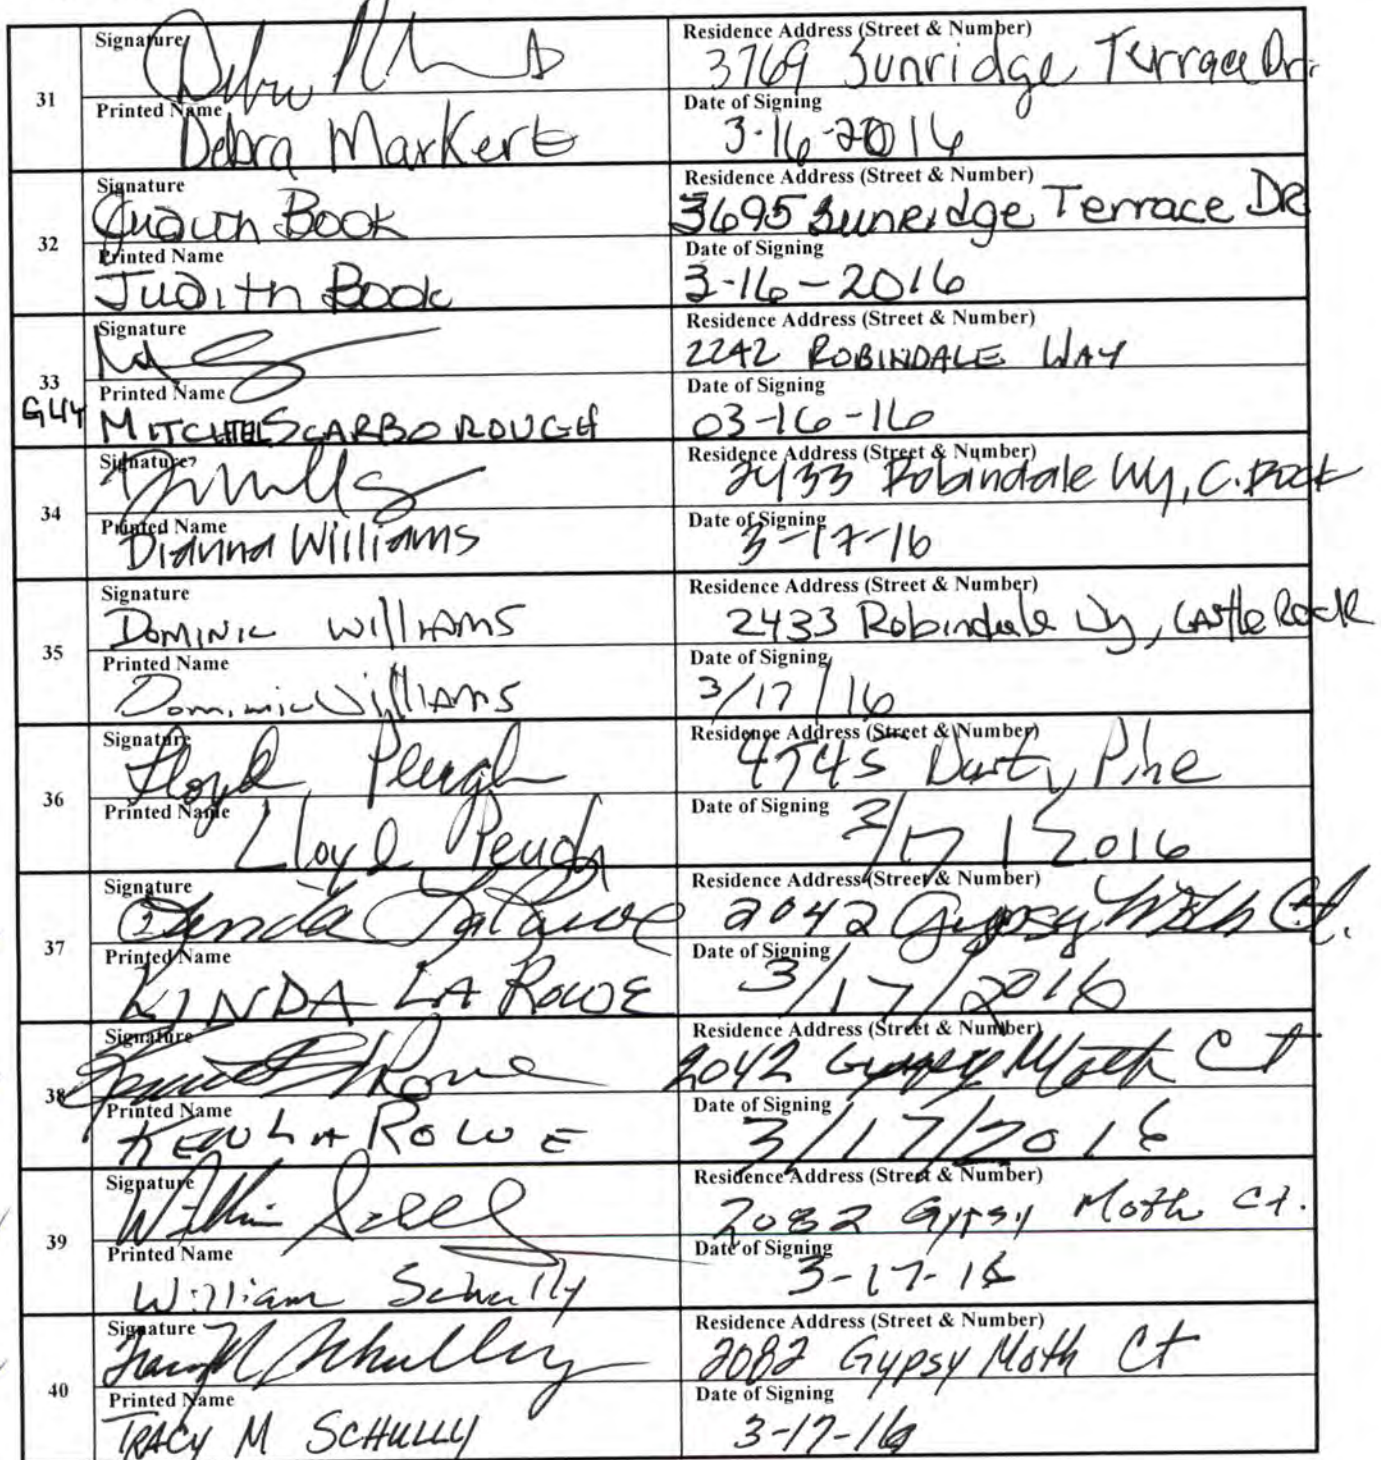 31
Signature
Residence Address (Street & Number)
3769 Sunridge Terrace Dr.
Printed Name
Debra Markert
Date of Signing
3-16-2016
32
Signature
Judith Book
Residence Address (Street & Number)
3695 Sunridge Terrace DR
Printed Name
Judith Book
Date of Signing
3-16-2016
33
Signature
Residence Address (Street & Number)
2242 ROBINDALE WAY
Printed Name
SCARBOROUGH
Date of Signing
03-16-16
34
Signature
Residence Address (Street & Number)
2433 Robindale Wy, C. Rock
Printed Name
Dianna Williams
Date of Signing
3-17-16
35
Signature
DOMINIC WILLIAMS
Residence Address (Street & Number)
2433 Robindale Wy, CAStle Rock
Printed Name
Dominic Williams
Date of Signing
3/17/16
36
Signature
Lloyd Peugh
Residence Address (Street & Number)
4745 Dusty Pine
Printed Name
Lloyd Peugh
Date of Signing
3/17/2016
37
Signature
Linda LaRowe
Residence Address (Street & Number)
2042 Gypsy Moth Ct.
Printed Name
LINDA LA ROWE
Date of Signing
3/17/2016
38
Signature
Residence Address (Street & Number)
2042 Gypsy Moth Ct
Printed Name
KEN LA ROWE
Date of Signing
3/17/2016
39
Signature
William
Residence Address (Street & Number)
2082 Gypsy Moth Ct.
Printed Name
William Schully
Date of Signing
3-17-16
40
Signature
Tracy M Schully
Residence Address (Street & Number)
2082 Gypsy Moth Ct
Printed Name
TRACY M SCHULLY
Date of Signing
3-17-16